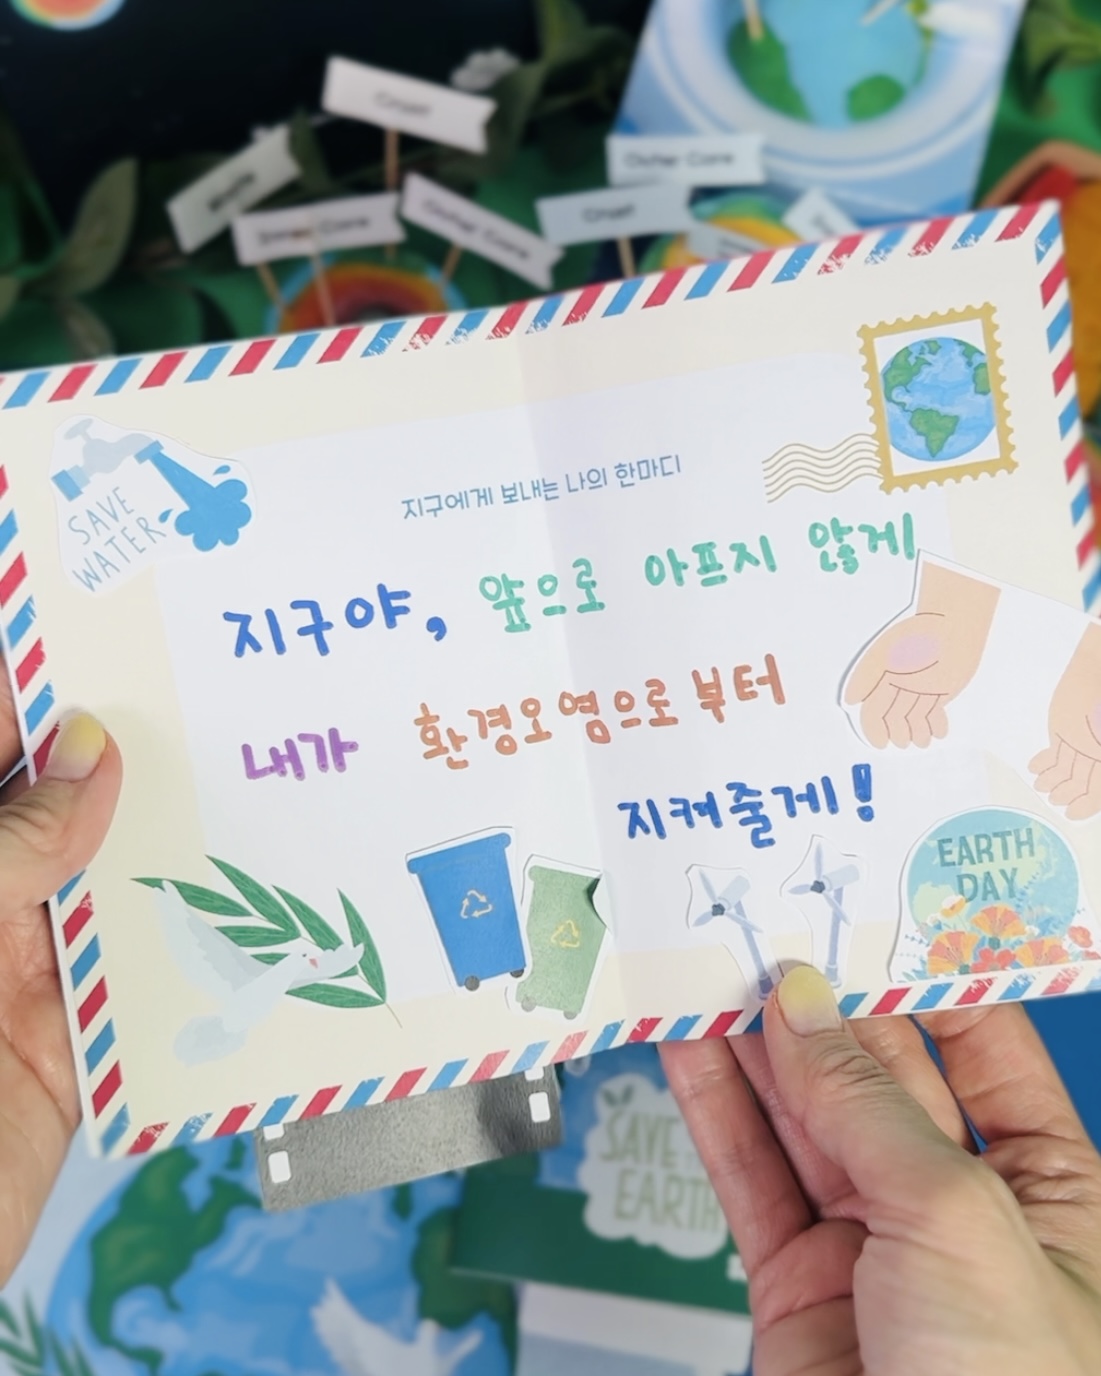 Crust
Outer Core
Crust
Inner Core
Outer Core
지구에게 보내는 나의 한마디
SAVE
WATER
지구야, 앞으로 아프지 않게
내가 환경오염으로부터
지켜줄게!
EARTH
DAY
SAVE
EARTH